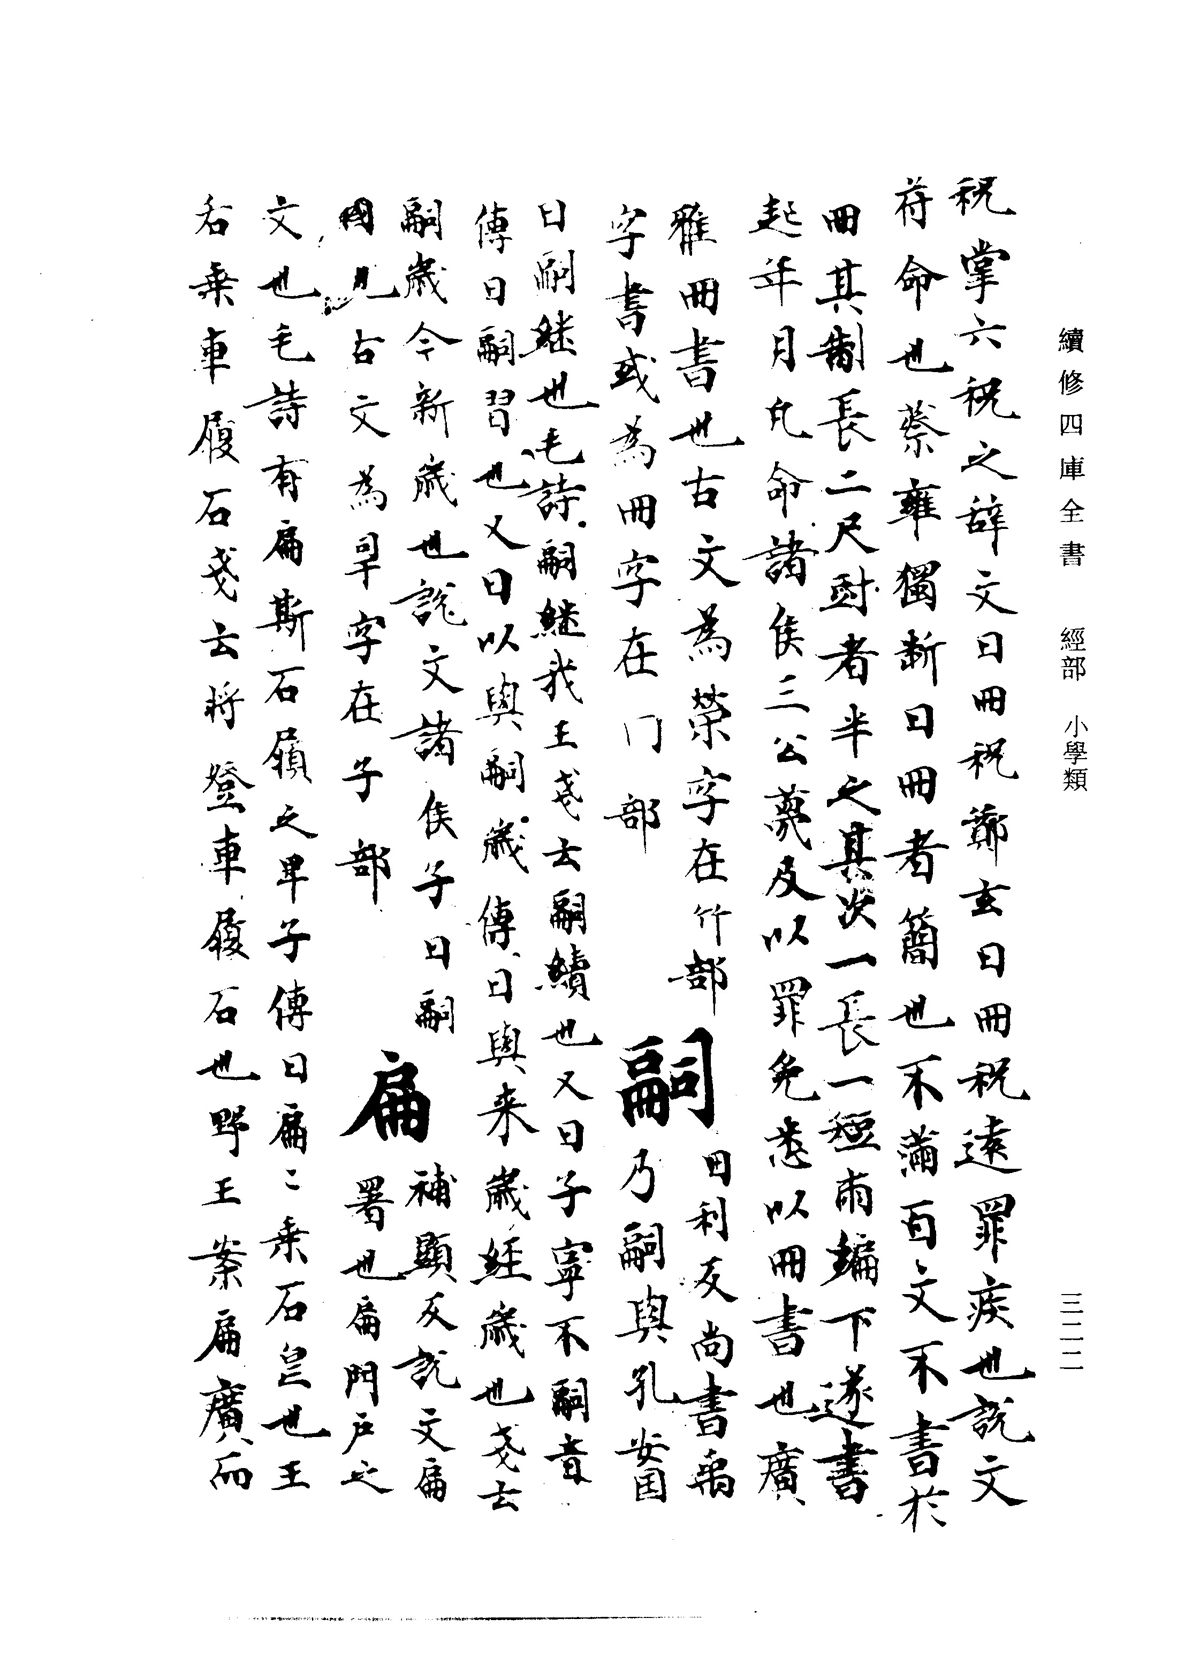 續修四庫全書 經部 小學類 三二二
祝掌六祝之辞文曰冊祝鄭玄曰冊祝遠罪疾也說文
苻命也蔡雍獨斷曰冊者簡也不滿百文不書於
冊其制長二尺尌者半之其次一長一短兩編下遂書
起年月凡命諸侯三公薨及以罪免悉以冊書也廣
雅冊書也古文為䇲字在竹部
字書或為冊字在门部
嗣
田利反尚書禹
乃嗣興孔安国
曰嗣継也毛詩嗣継我王戔云嗣續也又曰子寧不嗣音
傳曰嗣習也又曰以興嗣歳傳曰興来歳継歳也戔云
嗣歳今新歳也說文諸侯子曰嗣
國也古文為㚸字在子部
扁
補顯反說文扁
署也扁門戶之
文也毛詩有扁斯石履之卑子傳曰扁〻乗石皃也王
右乗車履石戔云將登車履石也野王案扁廣而